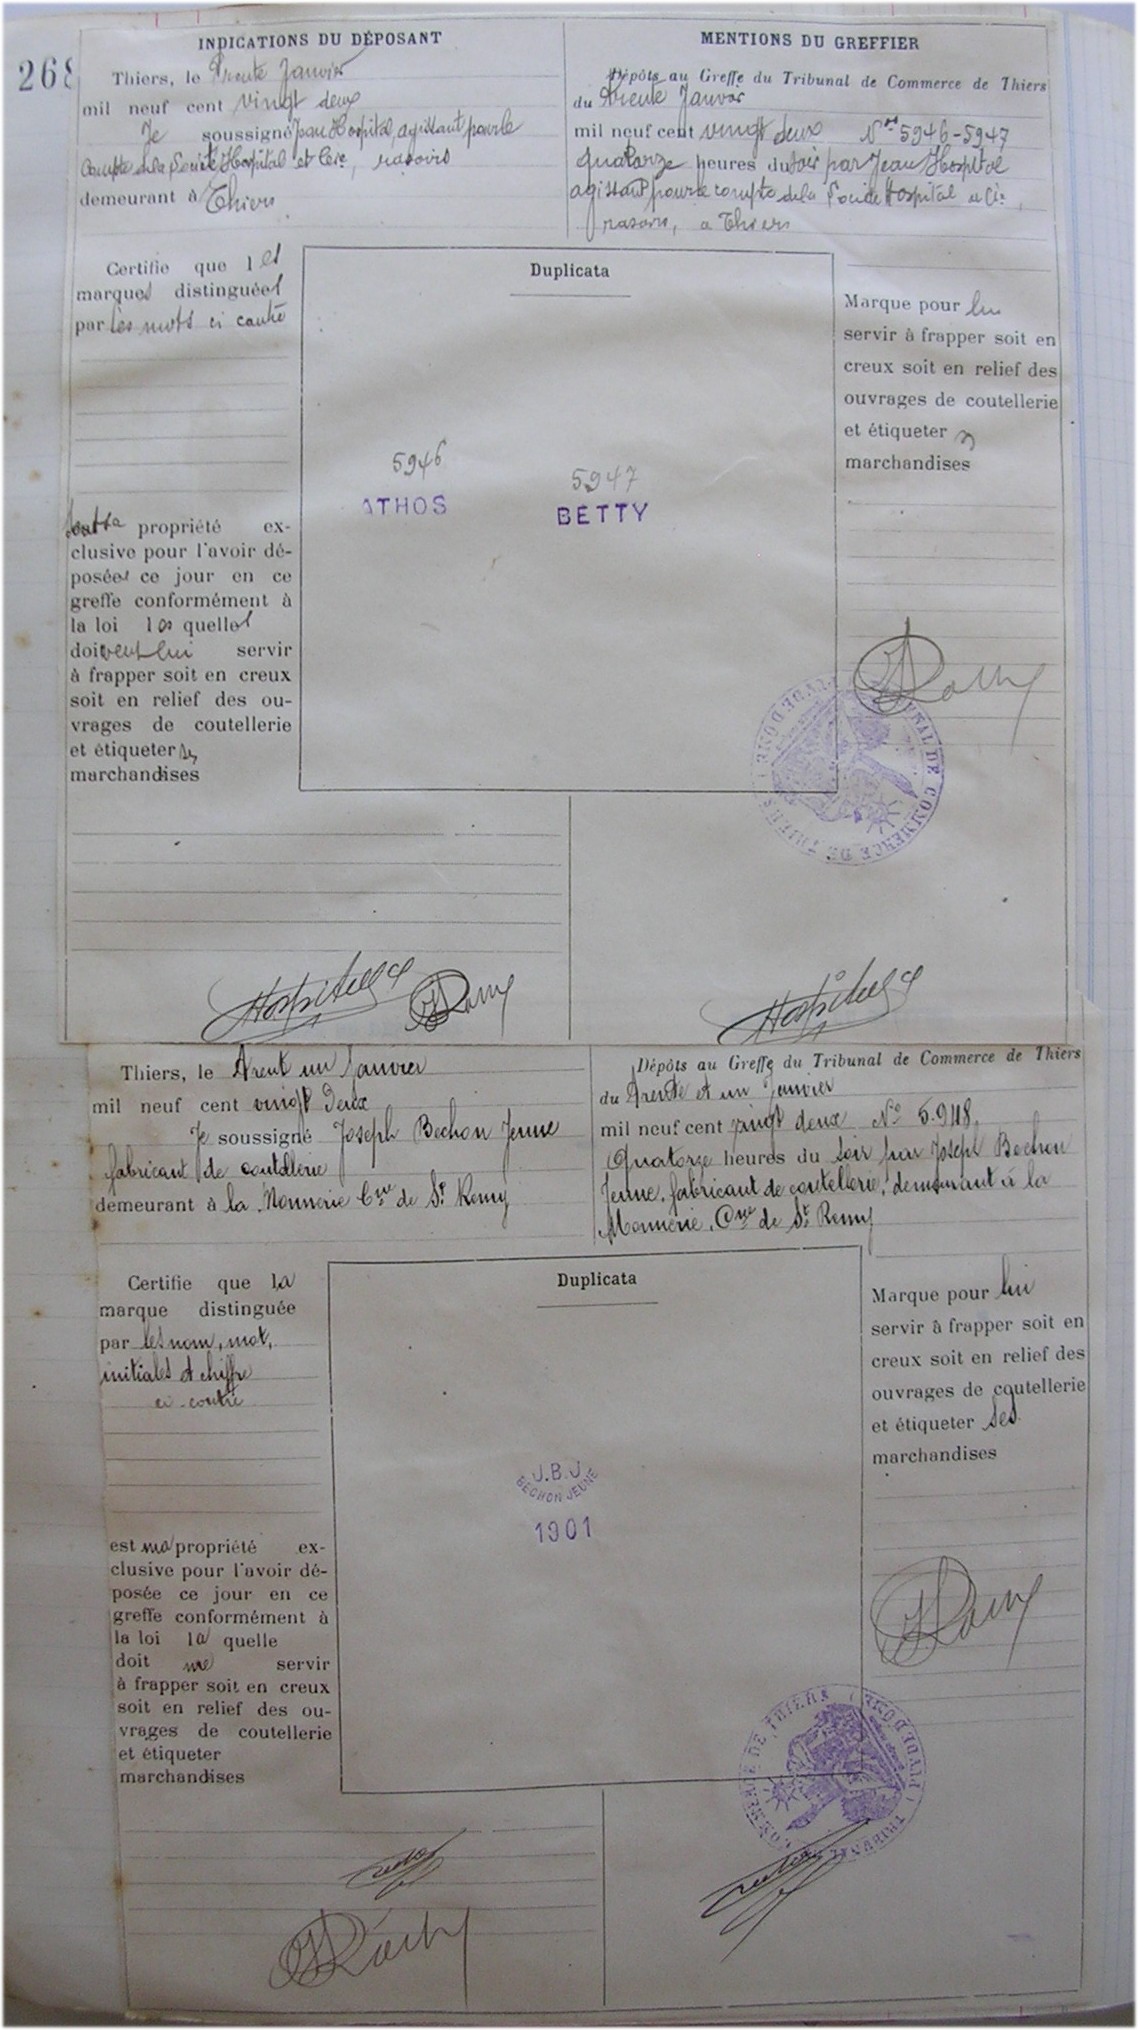 268
INDICATIONS DU DÉPOSANT
Thiers, le Trente Janvier
mil neuf cent vingt deux
Je soussigné Jean Hospital, agissant pour le
compte de la Société Hospital et Cie, rasoirs
demeurant à Thiers
MENTIONS DU GREFFIER
Dépôts au Greffe du Tribunal de Commerce de Thiers
du Trente Janvier
mil neuf cent vingt deux Nos 5946-5947
Quatorze heures du soir par Jean Hospital
agissant pour le compte de la Société Hospital et Cie,
rasoirs, a Thiers
Certifie que les
marques distinguées
par les mots ci contre
propriété ex-
clusive pour l'avoir dé-
posées ce jour en ce
greffe conformément à
la loi les quelles
doivent lui servir
à frapper soit en creux
soit en relief des ou-
vrages de coutellerie
et étiqueter ses
marchandises
Duplicata
5946
ATHOS
5947
BETTY
Marque pour lui
servir à frapper soit en
creux soit en relief des
ouvrages de coutellerie
et étiqueter
marchandises
TRIBUNAL DE COMMERCE DE THIERS (PUY DE DOME)
Hospital & Cie
Hospital & Cie
Thiers, le Trent un Janvier
mil neuf cent vingt Deux
Je soussigné Joseph Bechon Jeune
fabricant de coutellerie
demeurant à la Monnerie Cne de St Remy
Dépôts au Greffe du Tribunal de Commerce de Thiers
du Trente et un Janvier
mil neuf cent vingt deux No 5.948,
Quatorze heures du soir par Joseph Bechon
Jeune, fabricant de coutellerie, demeurant à la
Monnerie, Cne de St Remy
Certifie que la
marque distinguée
par les nom, mot,
initiales et chiffre
ci-contre
est ma propriété ex-
clusive pour l'avoir dé-
posée ce jour en ce
greffe conformément à
la loi la quelle
doit me servir
à frapper soit en creux
soit en relief des ou-
vrages de coutellerie
et étiqueter
marchandises
Duplicata
J.B.J
BECHON JEUNE
1901
Marque pour lui
servir à frapper soit en
creux soit en relief des
ouvrages de coutellerie
et étiqueter ses
marchandises
TRIBUNAL DE COMMERCE DE THIERS (PUY DE DOME)